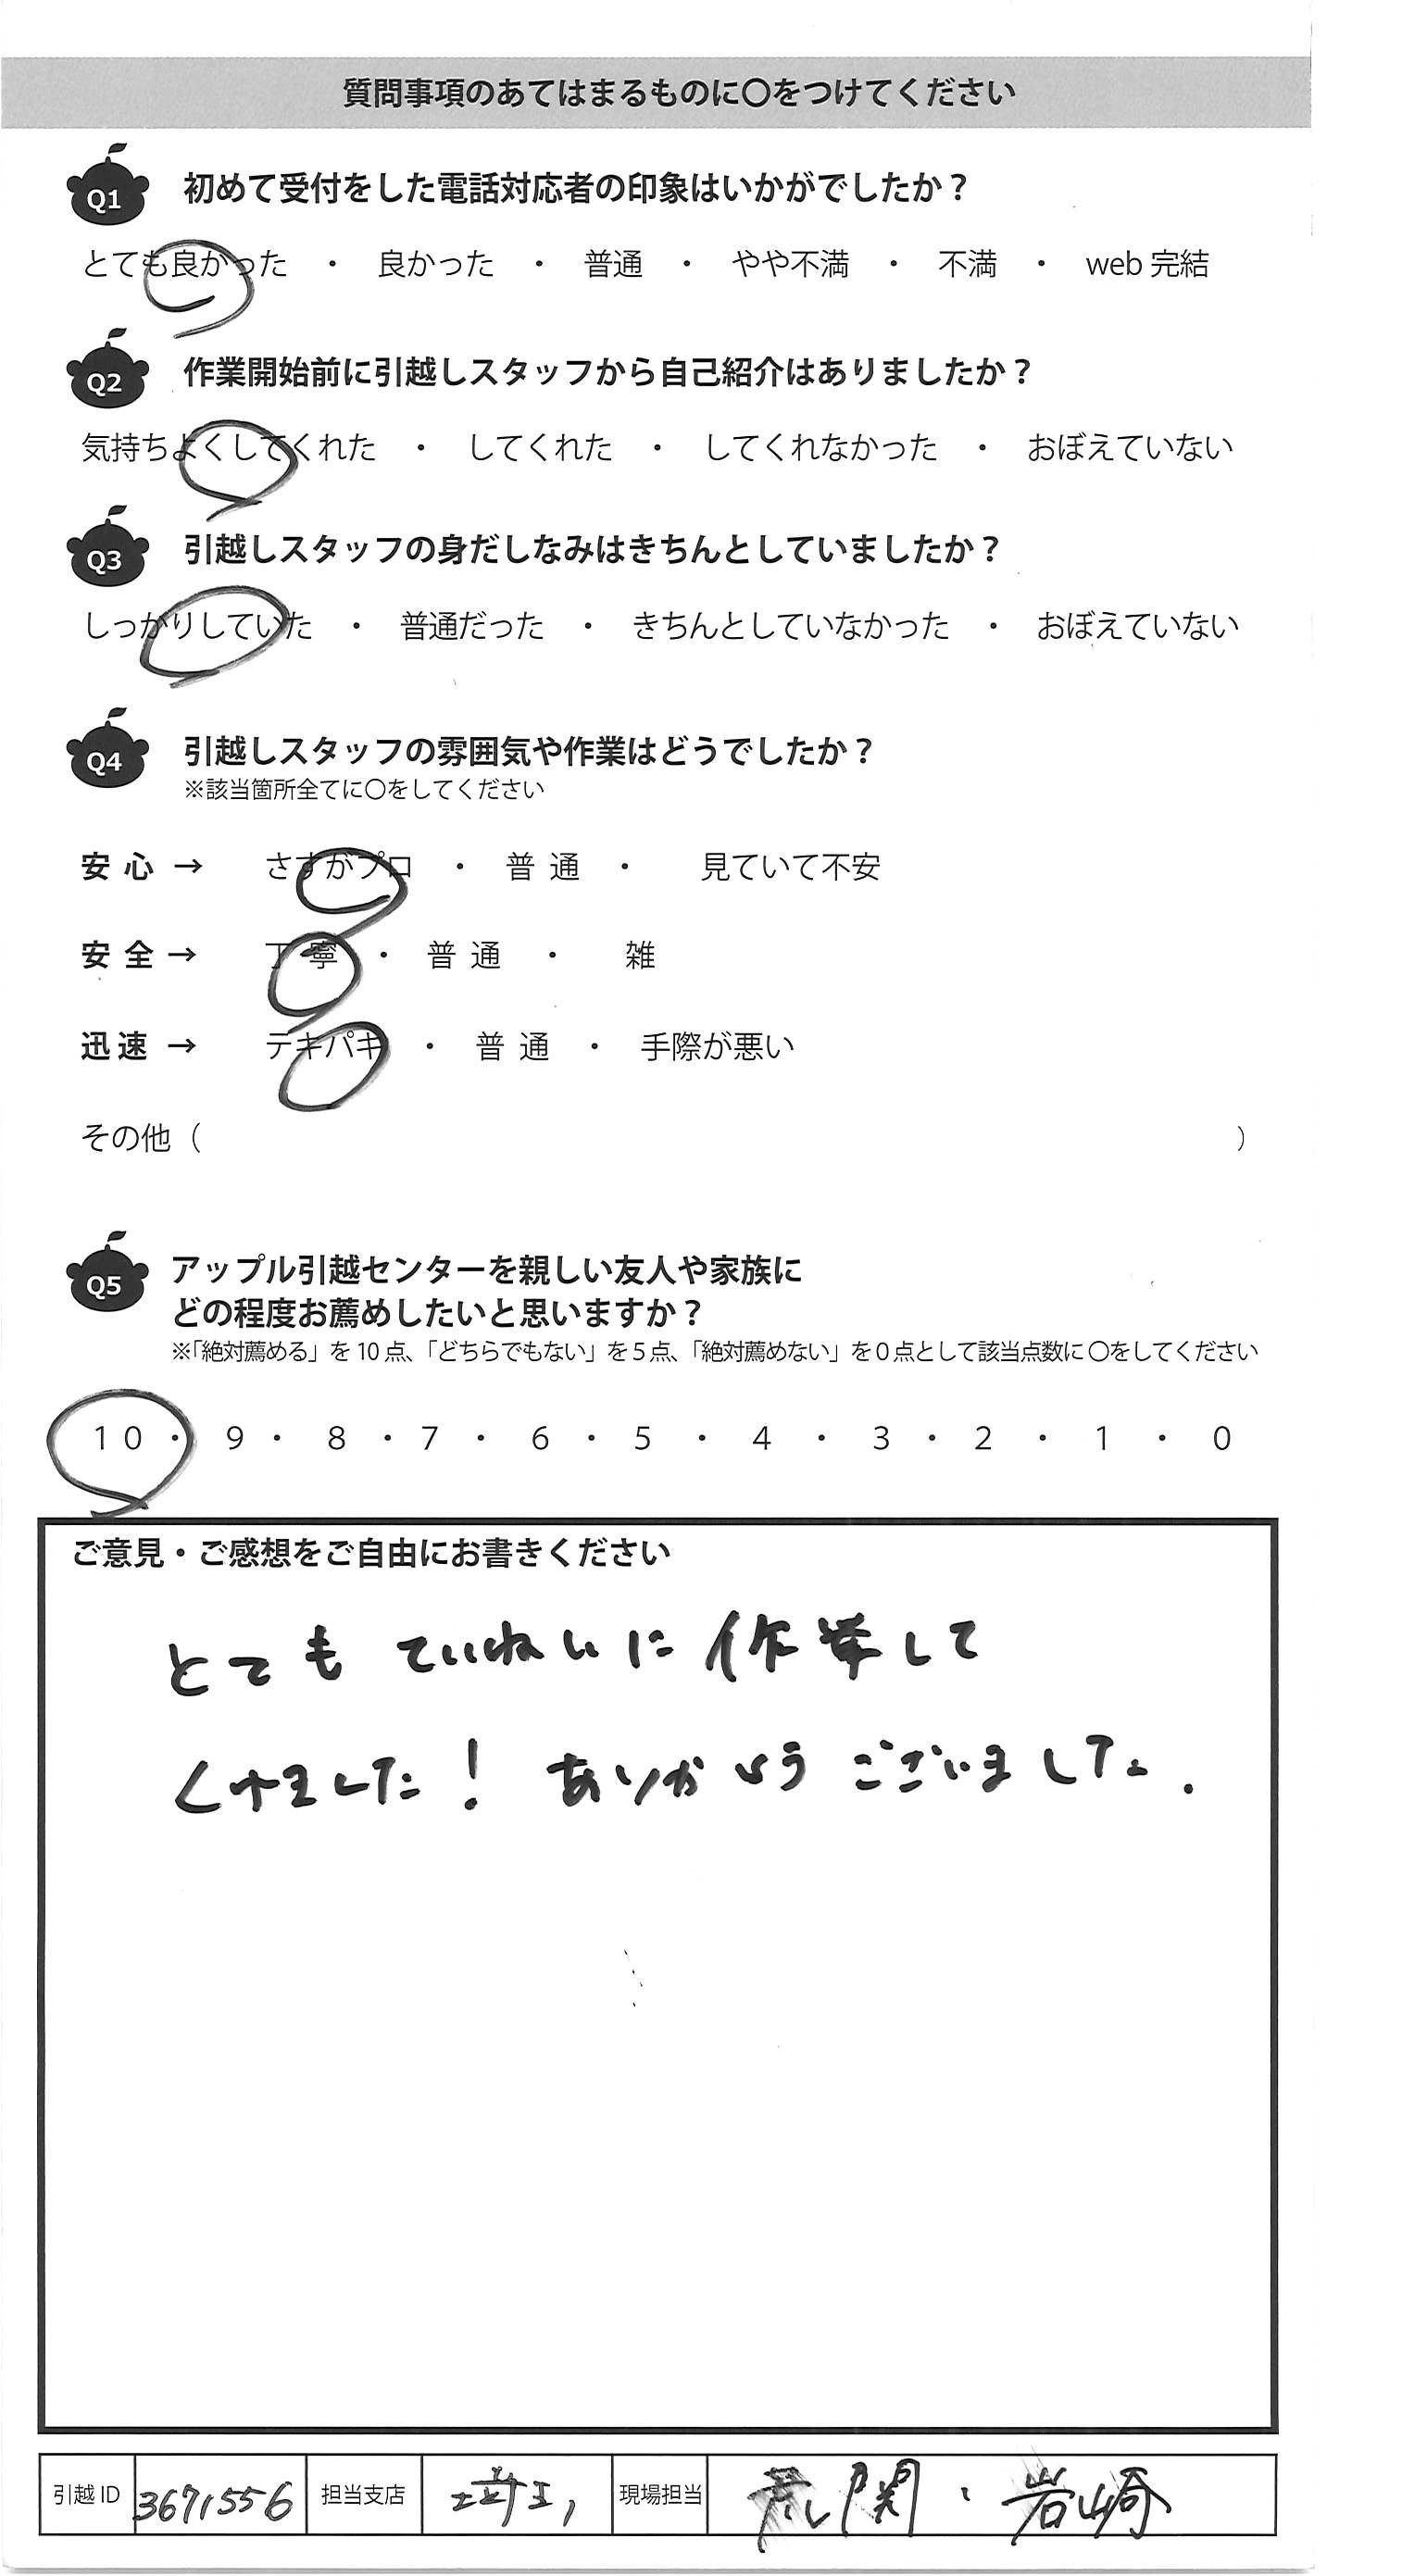 質問事項のあてはまるものに〇をつけてください
Q1 初めて受付をした電話対応者の印象はいかがでしたか？
とても良かった ・ 良かった ・ 普通 ・ やや不満 ・ 不満 ・ web 完結
Q2 作業開始前に引越しスタッフから自己紹介はありましたか？
気持ちよくしてくれた ・ してくれた ・ してくれなかった ・ おぼえていない
Q3 引越しスタッフの身だしなみはきちんとしていましたか？
しっかりしていた ・ 普通だった ・ きちんとしていなかった ・ おぼえていない
Q4 引越しスタッフの雰囲気や作業はどうでしたか？
※該当箇所全てに〇をしてください
安心 → さすがプロ ・ 普通 ・ 見ていて不安
安全 → 丁寧 ・ 普通 ・ 雑
迅速 → テキパキ ・ 普通 ・ 手際が悪い
その他（ ）
Q5 アップル引越センターを親しい友人や家族に
どの程度お薦めしたいと思いますか？
※「絶対薦める」を 10 点、「どちらでもない」を 5 点、「絶対薦めない」を 0 点として該当点数に 〇をしてください
10 ・ 9 ・ 8 ・ 7 ・ 6 ・ 5 ・ 4 ・ 3 ・ 2 ・ 1 ・ 0
ご意見・ご感想をご自由にお書きください
とても ていねいに 作業して
くれました！ ありがとう ございました.
引越 ID 3671556 担当支店 現場担当 関 ・ 岩崎